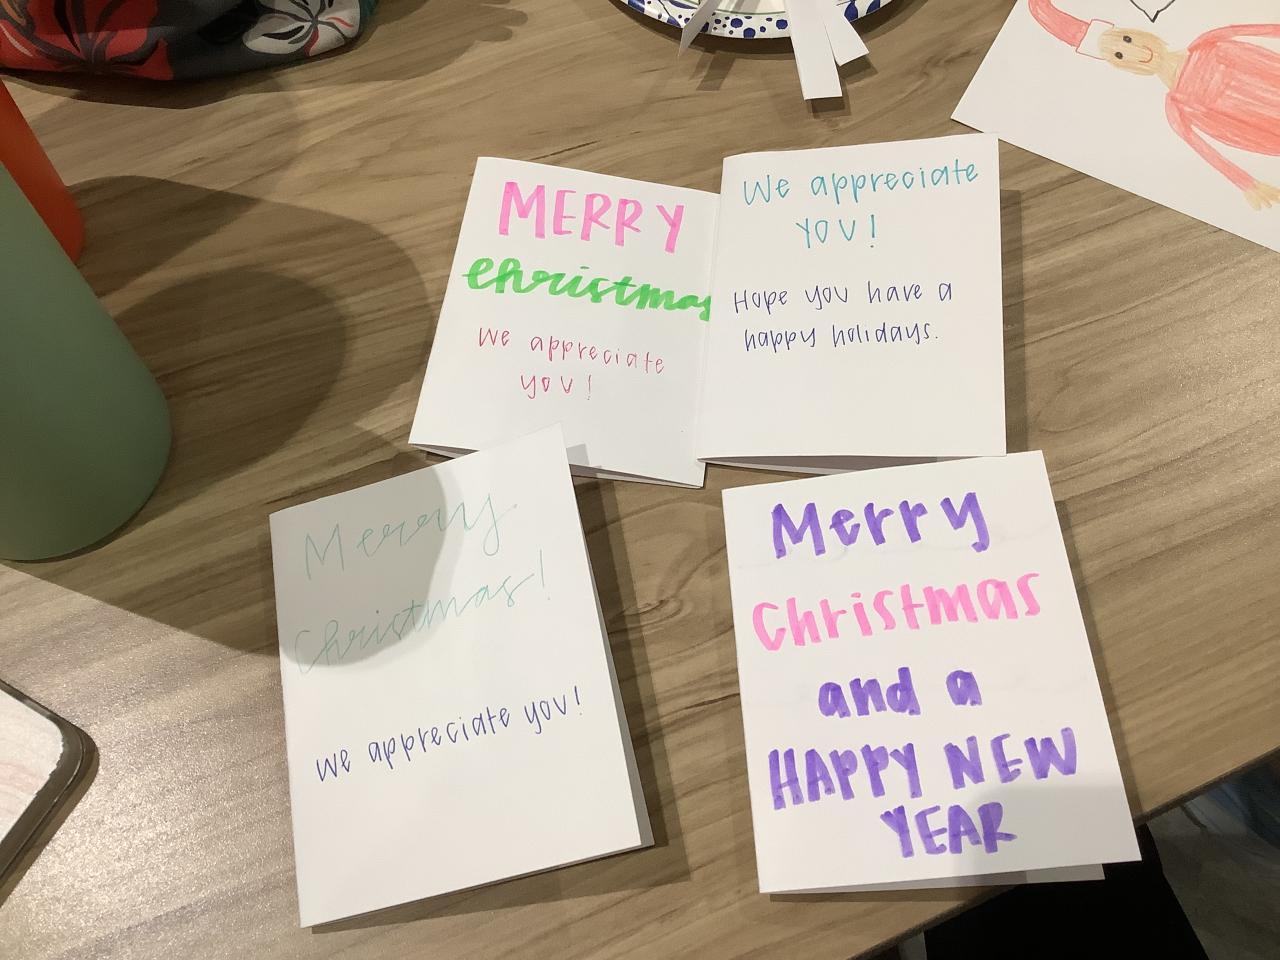 MERRY
christmas
We appreciate
you!
We appreciate
YOU!
Hope you have a
happy holidays.
Merry
Christmas!
We appreciate you!
Merry
Christmas
and a
HAPPY NEW
YEAR